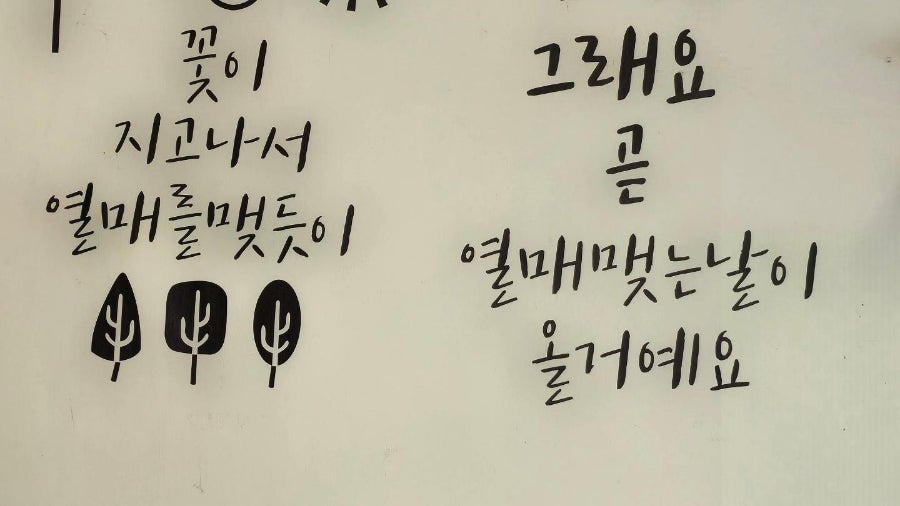 꽃이
지고나서
열매를맺듯이
그래요
곧
열매맺는날이
올거예요